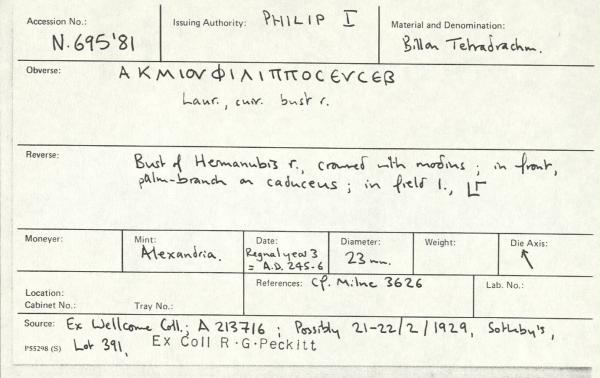 Accession No.: N.695'81
Issuing Authority: PHILIP I
Material and Denomination: Billon Tetradrachm.
Obverse: Α Κ Μ ΙΟΥ ΦΙΛΙΠΠΟC ΕΥCΕΒ
Laur., cuir. bust r.
Reverse: Bust of Hermanubis r., crowned with modius; in front,
palm-branch on caduceus; in field l., LΓ
Moneyer:
Mint: Alexandria.
Date: Regnal year 3
= A.D. 245-6
Diameter: 23 mm.
Weight:
Die Axis: ↖
Location:
Cabinet No.: Tray No.:
References: Cf. Milne 3626
Lab. No.:
Source: Ex Wellcome Coll.; A 213716; Possibly 21-22/2/1929, Sotheby's,
P55298 (S) Lot 391, Ex Coll R.G.Peckitt